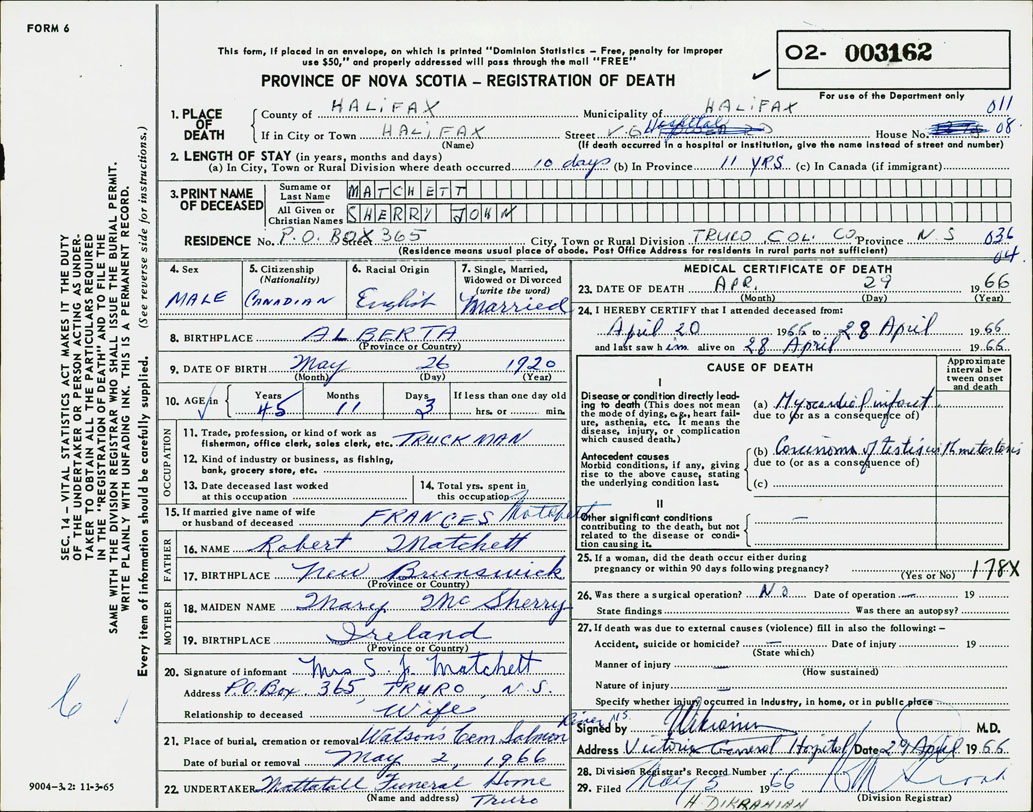 FORM 6
This form, if placed in an envelope, on which is printed "Dominion Statistics – Free, penalty for improper
use $50," and properly addressed will pass through the mail "FREE"
PROVINCE OF NOVA SCOTIA – REGISTRATION OF DEATH
02- 003162
For use of the Department only
1. PLACE OF DEATH
County of HALIFAX Municipality of HALIFAX 011
If in City or Town HALIFAX Street V.G. Hospital House No. 08.
(Name) (If death occurred in a hospital or institution, give the name instead of street and number)
2. LENGTH OF STAY (in years, months and days)
(a) In City, Town or Rural Division where death occurred 10 days (b) In Province 11 YRS. (c) In Canada (if immigrant)
3. PRINT NAME OF DECEASED
Surname or Last Name MATCHETT
All Given or Christian Names SHERRY JOHN
RESIDENCE No. P.O. BOX 365 Street City, Town or Rural Division TRURO COL. CO. Province N.S 036
(Residence means usual place of abode. Post Office Address for residents in rural parts not sufficient) 04.
4. Sex MALE
5. Citizenship (Nationality) CANADIAN
6. Racial Origin English
7. Single, Married, Widowed or Divorced (write the word) Married
8. BIRTHPLACE ALBERTA
(Province or Country)
9. DATE OF BIRTH May 26 1920
(Month) (Day) (Year)
10. AGE in Years 45 Months 11 Days 3 If less than one day old hrs. or min.
OCCUPATION
11. Trade, profession, or kind of work as fisherman, office clerk, sales clerk, etc. TRUCKMAN
12. Kind of industry or business, as fishing, bank, grocery store, etc.
13. Date deceased last worked at this occupation
14. Total yrs. spent in this occupation
15. If married give name of wife or husband of deceased FRANCES
FATHER
16. NAME Robert Matchett
17. BIRTHPLACE New Brunswick
(Province or Country)
MOTHER
18. MAIDEN NAME Mary McSherry
19. BIRTHPLACE Ireland
(Province or Country)
20. Signature of informant Mrs S. J. Matchett
Address P.O. Box 365, TRURO, N.S.
Relationship to deceased Wife
21. Place of burial, cremation or removal Watsons Cem Salmon River N.S.
Date of burial or removal May 2, 1966
22. UNDERTAKER Mattatall Funeral Home
(Name and address) Truro
MEDICAL CERTIFICATE OF DEATH
23. DATE OF DEATH APR. 29 1966
(Month) (Day) (Year)
24. I HEREBY CERTIFY that I attended deceased from:
April 20 1966 to 28 April 1966
and last saw him alive on 28 April 1966.
CAUSE OF DEATH
Approximate interval between onset and death
I
Disease or condition directly leading to death (This does not mean the mode of dying, e.g., heart failure, asthenia, etc. It means the disease, injury, or complication which caused death.)
(a) Myocardial infarct
due to (or as a consequence of)
Antecedent causes
Morbid conditions, if any, giving rise to the above cause, stating the underlying condition last.
(b) Carcinoma of testis with metastasis
due to (or as a consequence of)
(c)
II
Other significant conditions contributing to the death, but not related to the disease or condition causing it. —
25. If a woman, did the death occur either during pregnancy or within 90 days following pregnancy?
(Yes or No) 178X
26. Was there a surgical operation? NO Date of operation — 19
State findings Was there an autopsy?
27. If death was due to external causes (violence) fill in also the following: –
Accident, suicide or homicide? — Date of injury 19
(State which)
Manner of injury —
(How sustained)
Nature of injury —
Specify whether injury occurred in Industry, in home, or in public place
Signed by M.D.
Address Victoria General Hospital Date 29 April 1966
28. Division Registrar's Record Number
29. Filed May 5 1966
(Division Registrar)
H DIKRANIAN
SEC. 14 – VITAL STATISTICS ACT MAKES IT THE DUTY
OF THE UNDERTAKER OR PERSON ACTING AS UNDER-
TAKER TO OBTAIN ALL THE PARTICULARS REQUIRED
IN THE "REGISTRATION OF DEATH" AND TO FILE THE
SAME WITH THE DIVISION REGISTRAR WHO SHALL ISSUE THE BURIAL PERMIT.
WRITE PLAINLY WITH UNFADING INK. THIS IS A PERMANENT RECORD.
Every item of information should be carefully supplied. (See reverse side for instructions.)
9004-3.2: 11-3-65